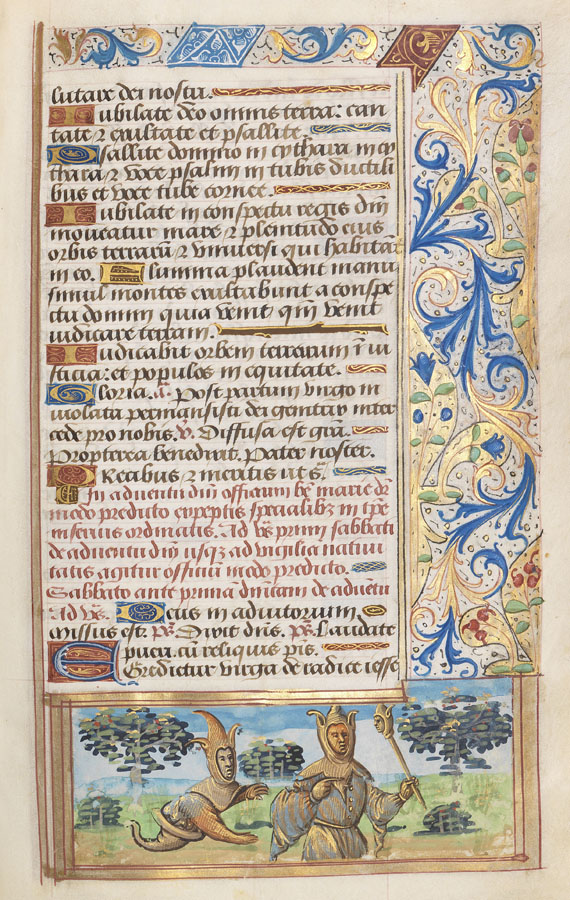 lutare dei nostri.
Iubilate deo omnis terra: can
tate ⁊ exultate et psallite.
Psallite domino in cythara in cy
thara ⁊ voce psalmi in tubis ductili
bus et voce tube cornee.
Iubilate in conspectu regis dñi
moueatur mare ⁊ plenitudo eius
orbis terrarū ⁊ vniuersi qui habitāt
in eo. Flumina plaudent manu
simul montes exultabunt a conspe
ctu domini quia venit qm̄ venit
iudicare terram.
Iudicabit orbem terrarum ī iu
sticia: et populos in equitate.
Gloria. Post partum virgo in
uiolata permansisti dei genitrix inter
cede pro nobis. v̄. Diffusa est grā.
Propterea benedixit. Pater noster.
Precibus ⁊ meritis ut s̄.
In aduentu dñi officium bē marie dr̄
modo predicto exceptis specialibz in ipē
seruis ordinatis. Ad vēs primi sabbati
de aduentu dñi vsqz ad vigiliā natiui
tatis agitur officiū modo predicto.
Sabbato ante primā dñicam de aduētu
Ad vēs. Deus in adiutorium
Missus est. ps̄. Dixit dñs. ps̄. Laudate
pueri. cū reliquis pīs.
Egredietur virga de radice iesse